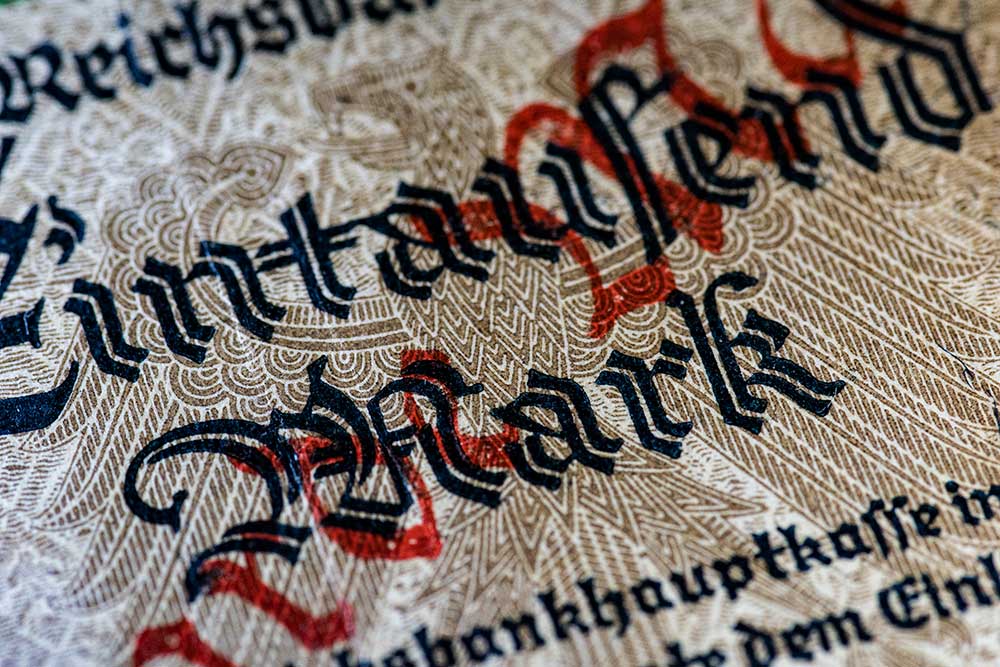 Reichsban
Eintauſend
Mark
chsbankhauptkaſſe in
dem Einl